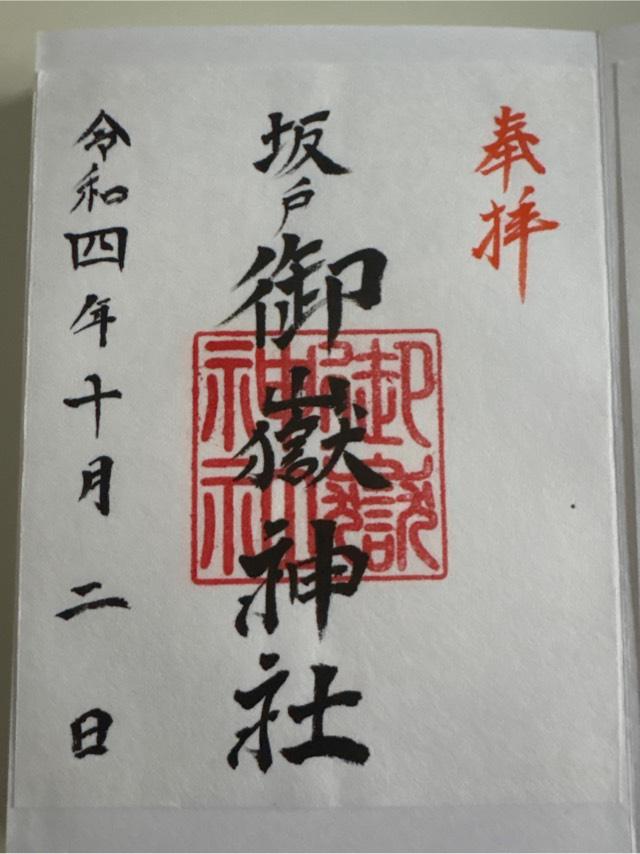 奉拝
坂戸御嶽神社
御嶽神社
令和四年十月二日